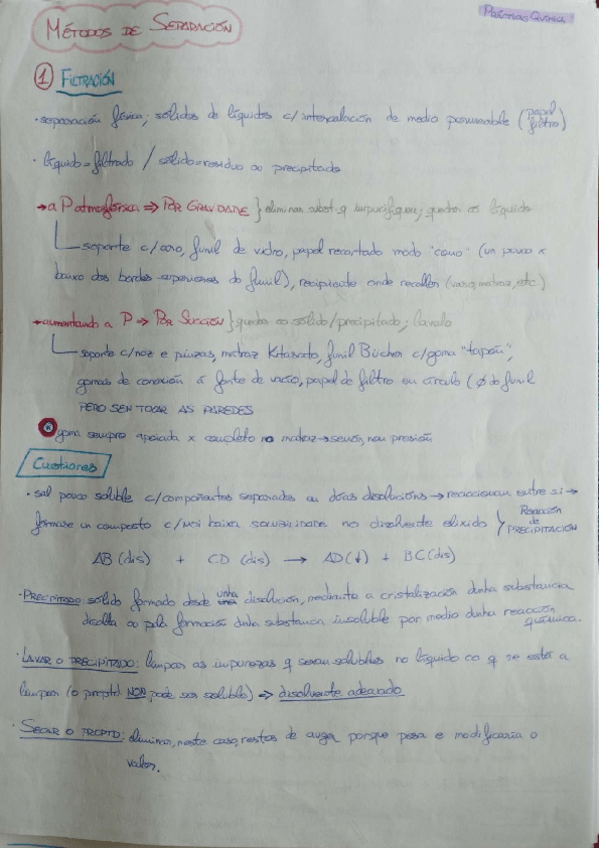 Prácticas Química
MÉTODOS DE SEPARACIÓN
1 FILTRACIÓN
· separación física; sólidos de líquidos c/ intercalación de medio permeable (papel filtro)
· líquido = filtrado / sólido = residuo ou precipitado
→ a P atmosférica ⇒ POR GRAVIDADE } eliminar subst. q impurifiquen; quedar co líquido
soporte c/ aro, funil de vidro, papel recortado modo "cono" (un pouco x
baixo dos bordes superiores do funil), recipiente onde recoller (vaso, matraz, etc.)
→ aumentando a P ⇒ POR SUCCIÓN } quedar co sólido/precipitado; lavalo
soporte c/ noz e pinzas, matraz Kitasato, funil Büchner c/ goma "tapón",
gomas de conexión á fonte de vacío, papel de filtro en círculo (ø do funil
PERO SEN TOCAR AS PAREDES
* goma sempre apoiada x completo no matraz → senón, non presión
Cuestiones
· sal pouco soluble c/ componentes separados en dúas disolucións → reaccionan entre si →
fórmase un composto c/ moi baixa solubilidade no disolvente elixido } Reacción de PRECIPITACIÓN
AB (dis) + CD (dis) → AD (↓) + BC (dis)
· PRECIPITADO: sólido formado desde unha disolución, mediante a cristalización dunha substancia
disolta ou pola formación dunha substancia insoluble por medio dunha reacción
química.
· LAVAR O PRECIPITADO: limpar as impurezas q seran solubles no líquido co q se estea a
limpar (o NON pode ser soluble) ⇒ disolvente adecuado
· SECAR O PRCPTD: eliminar, neste caso, restos de auga porque pesa e modificaría o
valor.